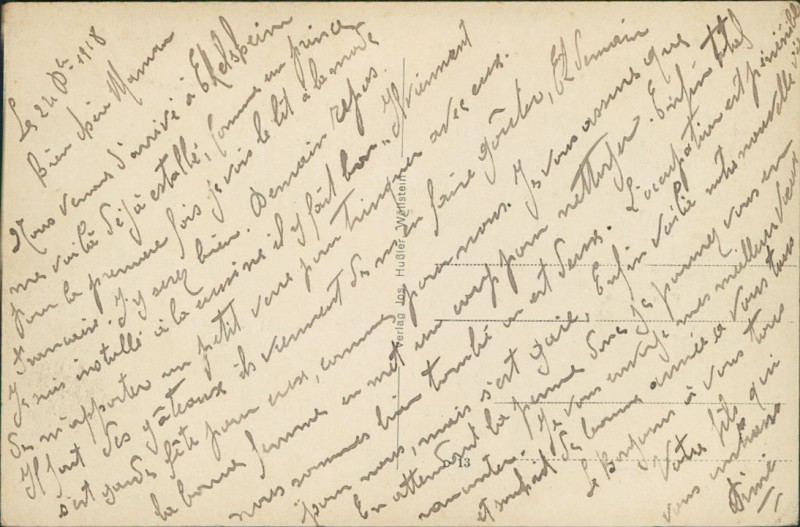 Le 24 Dbe 1918
Bien chère Maman
Nous venons d'arrivé à
me voilà déjà estallé, comme un prince
pour la première fois je vais le lit à la mode
J'y serez bien. Demain repos.
Je suis installé à la cuisine il y fait bon. Il viennent
de m'apporter un petit verre pour trinquer avec eux.
Il font des gâteaux ils viennent de m'en faire goûter, Et demain
s'est grande fête pour eux, comme pour nous. Je vous assures que
la bonne femme en met un coup pour nettoyer. Enfin
nous sommes bien tombé on est deux. L'occupation est
pour nous, mais s'est gaie, Enfin voilà notre nouvelle
En attendant la
raconter. Je vous envoye mes meilleurs vœux
et souhait de bonne année à vous tous
le Bonjour à vous tous
Votre fils qui
vous embrasse
Aimé
Verlag Jos. Hußler, Wellstein
13